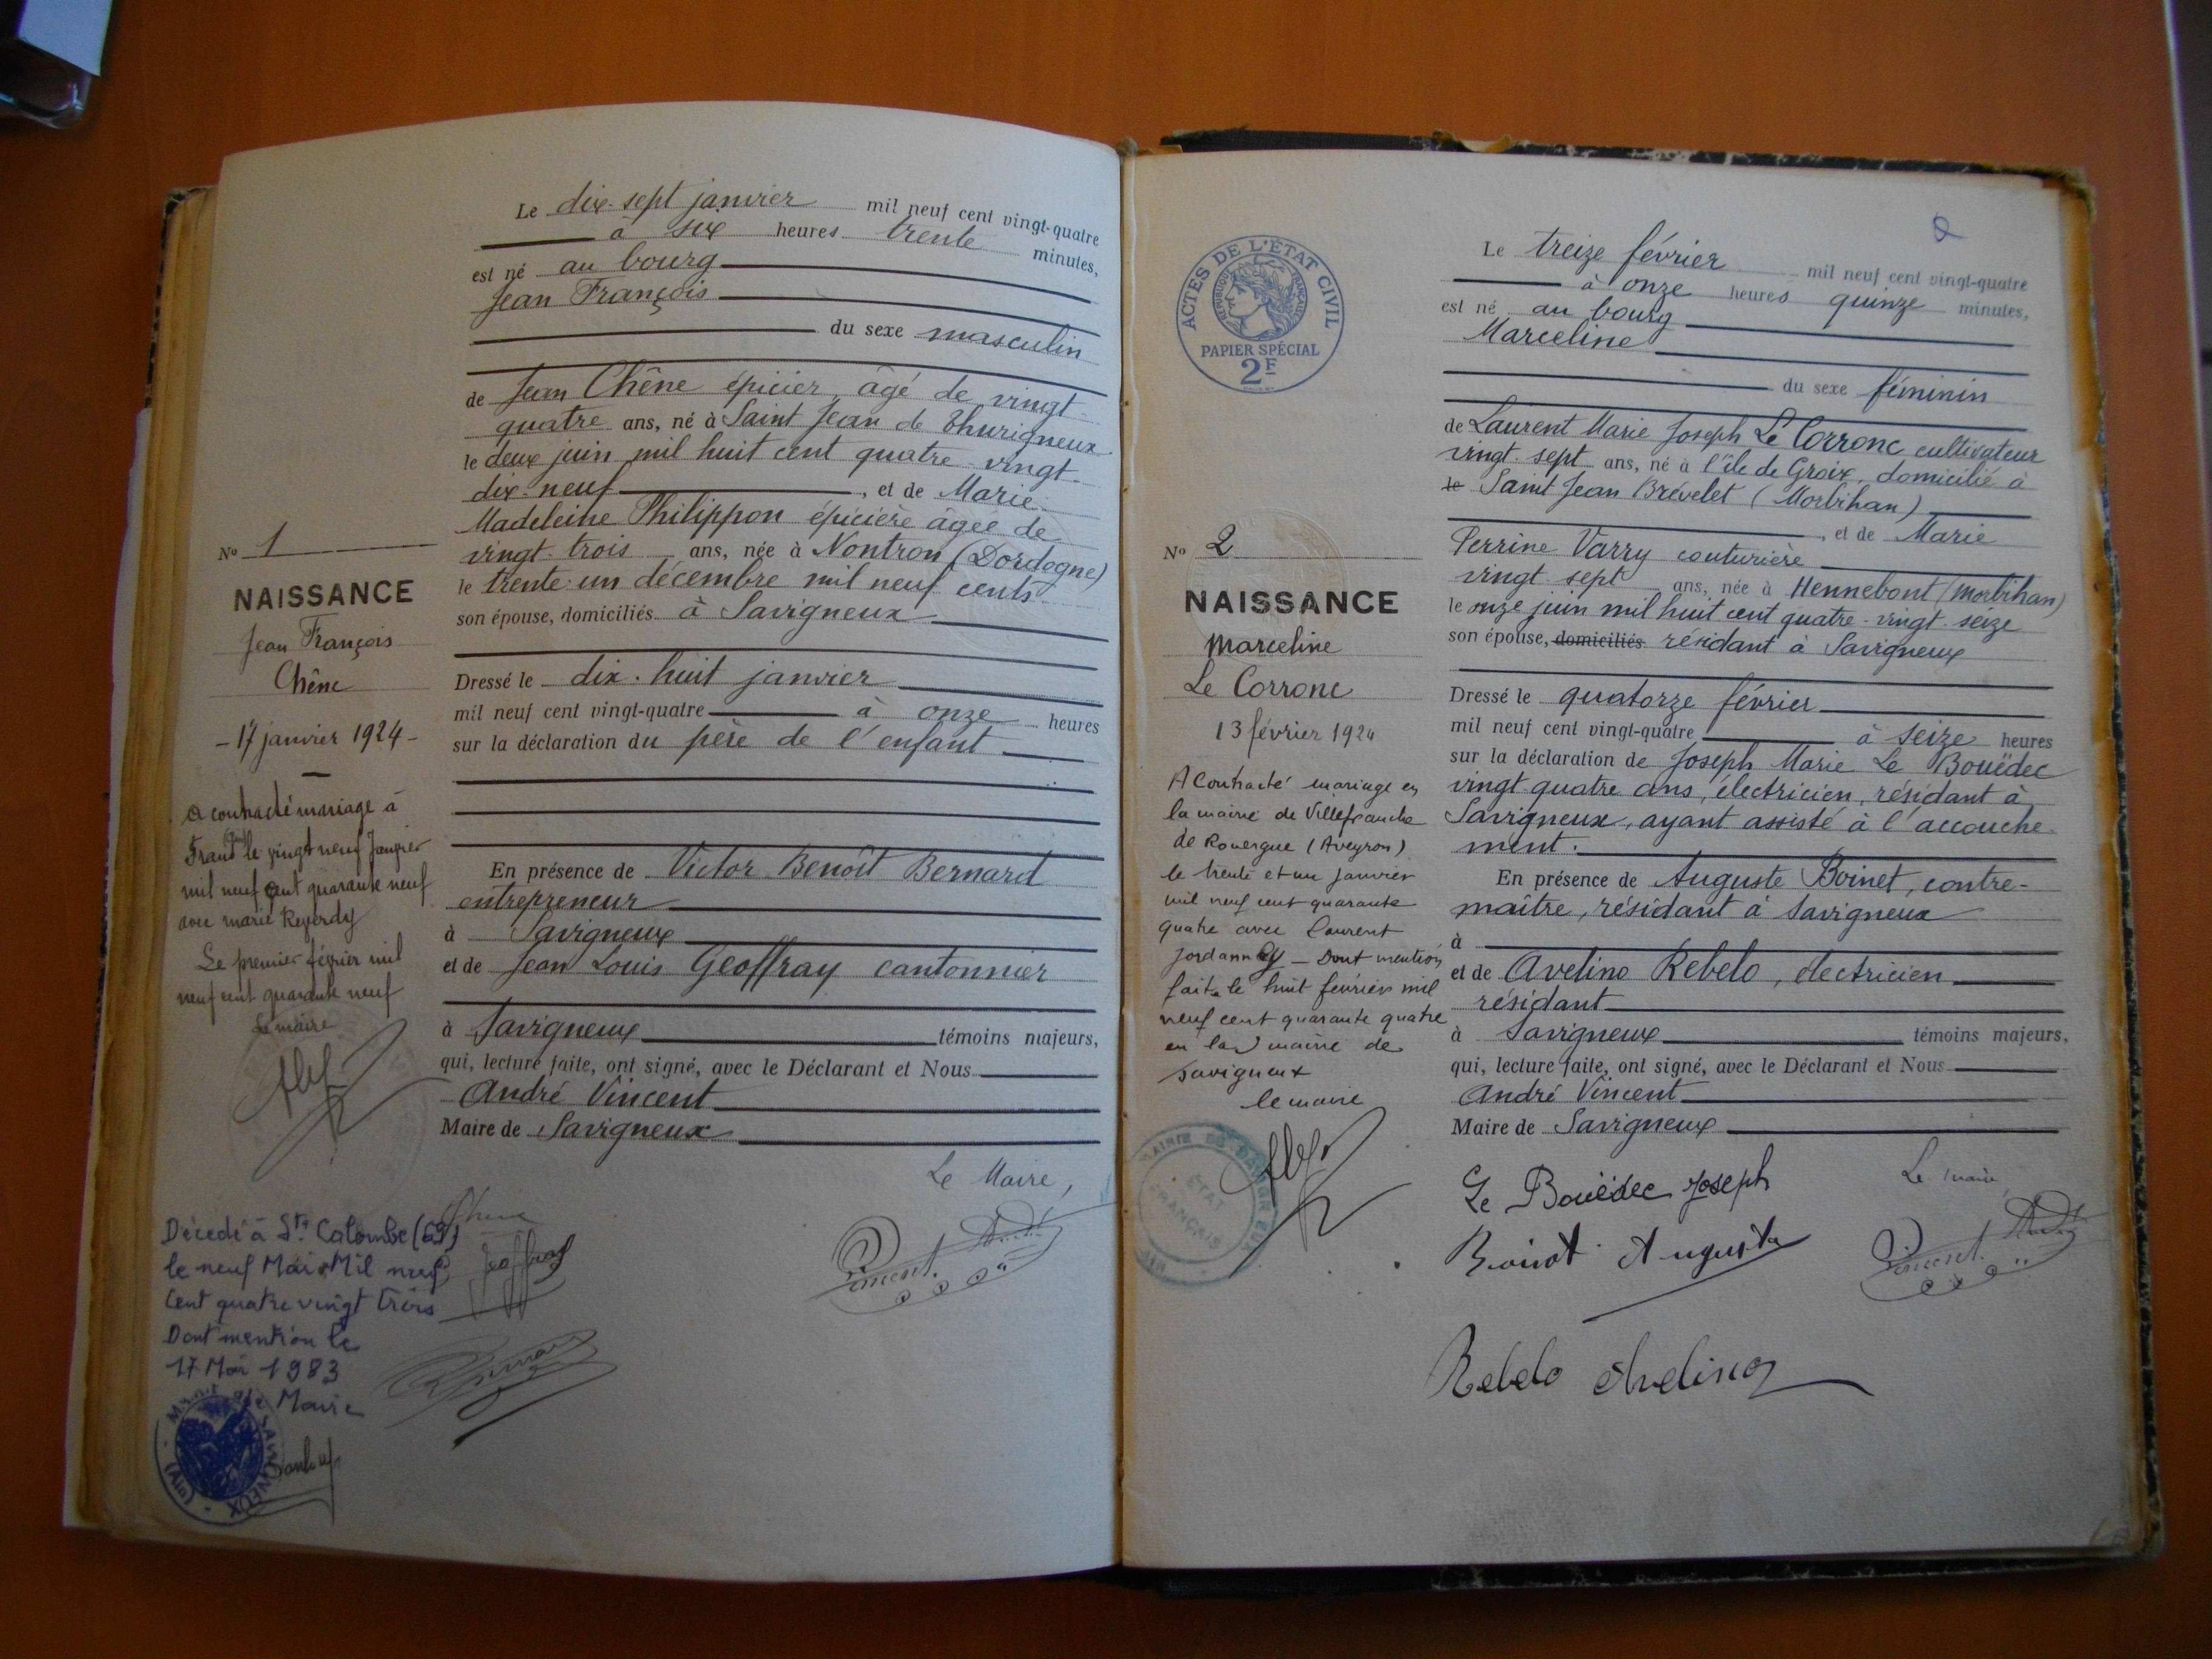 Le dix-sept janvier mil neuf cent vingt-quatre
à six heures trente minutes,
est né au bourg
Jean François
du sexe masculin
de Jean Chêne épicier, âgé de vingt-
quatre ans, né à Saint Jean de Thurigneux
le deux juin mil huit cent quatre-vingt-
dix-neuf, et de Marie
Madeleine Philippon épicière âgée de
vingt-trois ans, née à Nontron (Dordogne)
le trente-un décembre mil neuf cents
son épouse, domiciliés à Savigneux
Dressé le dix-huit janvier
mil neuf cent vingt-quatre à onze heures
sur la déclaration du père de l'enfant
En présence de Victor Benoît Bernard
entrepreneur
à Savigneux
et de Jean Louis Geoffray cantonnier
à Savigneux témoins majeurs,
qui, lecture faite, ont signé, avec le Déclarant et Nous
André Vincent
Maire de Savigneux
Le Maire,
Chêne
Geoffray
Vincent
No 1
NAISSANCE
Jean François
Chêne
-17 janvier 1924-
a contracté mariage à
le vingt neuf Janvier
mil neuf cent quarante neuf
avec marie
Le premier février mil
neuf cent quarante neuf
Le maire
Décédé à Ste Colombe (69)
le neuf Mai Mil neuf
Cent quatre vingt trois
Dont mention le
17 Mai 1983
Le Maire
SAVIGNEUX
(Ain)
ACTES DE L'ÉTAT CIVIL
RÉPUBLIQUE FRANÇAISE
PAPIER SPÉCIAL
2F
No 2
NAISSANCE
Marceline
Le Corronc
13 février 1924
A Contracté mariage en
la mairie de Villefranche
de Rouergue (Aveyron)
le trente et un janvier
mil neuf cent quarante
quatre avec Laurent
— Dont mention
faite le huit février mil
neuf cent quarante quatre
en la mairie de
Savigneux
le maire
ÉTAT
FRANÇAIS
2
Le treize février mil neuf cent vingt-quatre
à onze heures quinze minutes,
est né au bourg
Marceline
du sexe féminin
de Laurent Marie Joseph Le Corronc cultivateur
vingt-sept ans, né à l'île de Groix, domicilié à
le Saint Jean Brévelet (Morbihan)
, et de Marie
Perrine Varry couturière
vingt-sept ans, née à Hennebont (Morbihan)
le onze juin mil huit cent quatre-vingt-seize
son épouse, domiciliés résidant à Savigneux
Dressé le quatorze février
mil neuf cent vingt-quatre à seize heures
sur la déclaration de Joseph Marie Le Bouëdec
vingt-quatre ans, électricien, résidant à
Savigneux, ayant assisté à l'accouche-
ment.
En présence de Auguste Boinet, contre-
maître, résidant à Savigneux
à
et de Avelino Rebelo, électricien
résidant
à Savigneux témoins majeurs,
qui, lecture faite, ont signé, avec le Déclarant et Nous
André Vincent
Maire de Savigneux
Le Bouëdec Joseph
Le maire,
Boinot Auguste
Vincent André
Rebelo Avelino